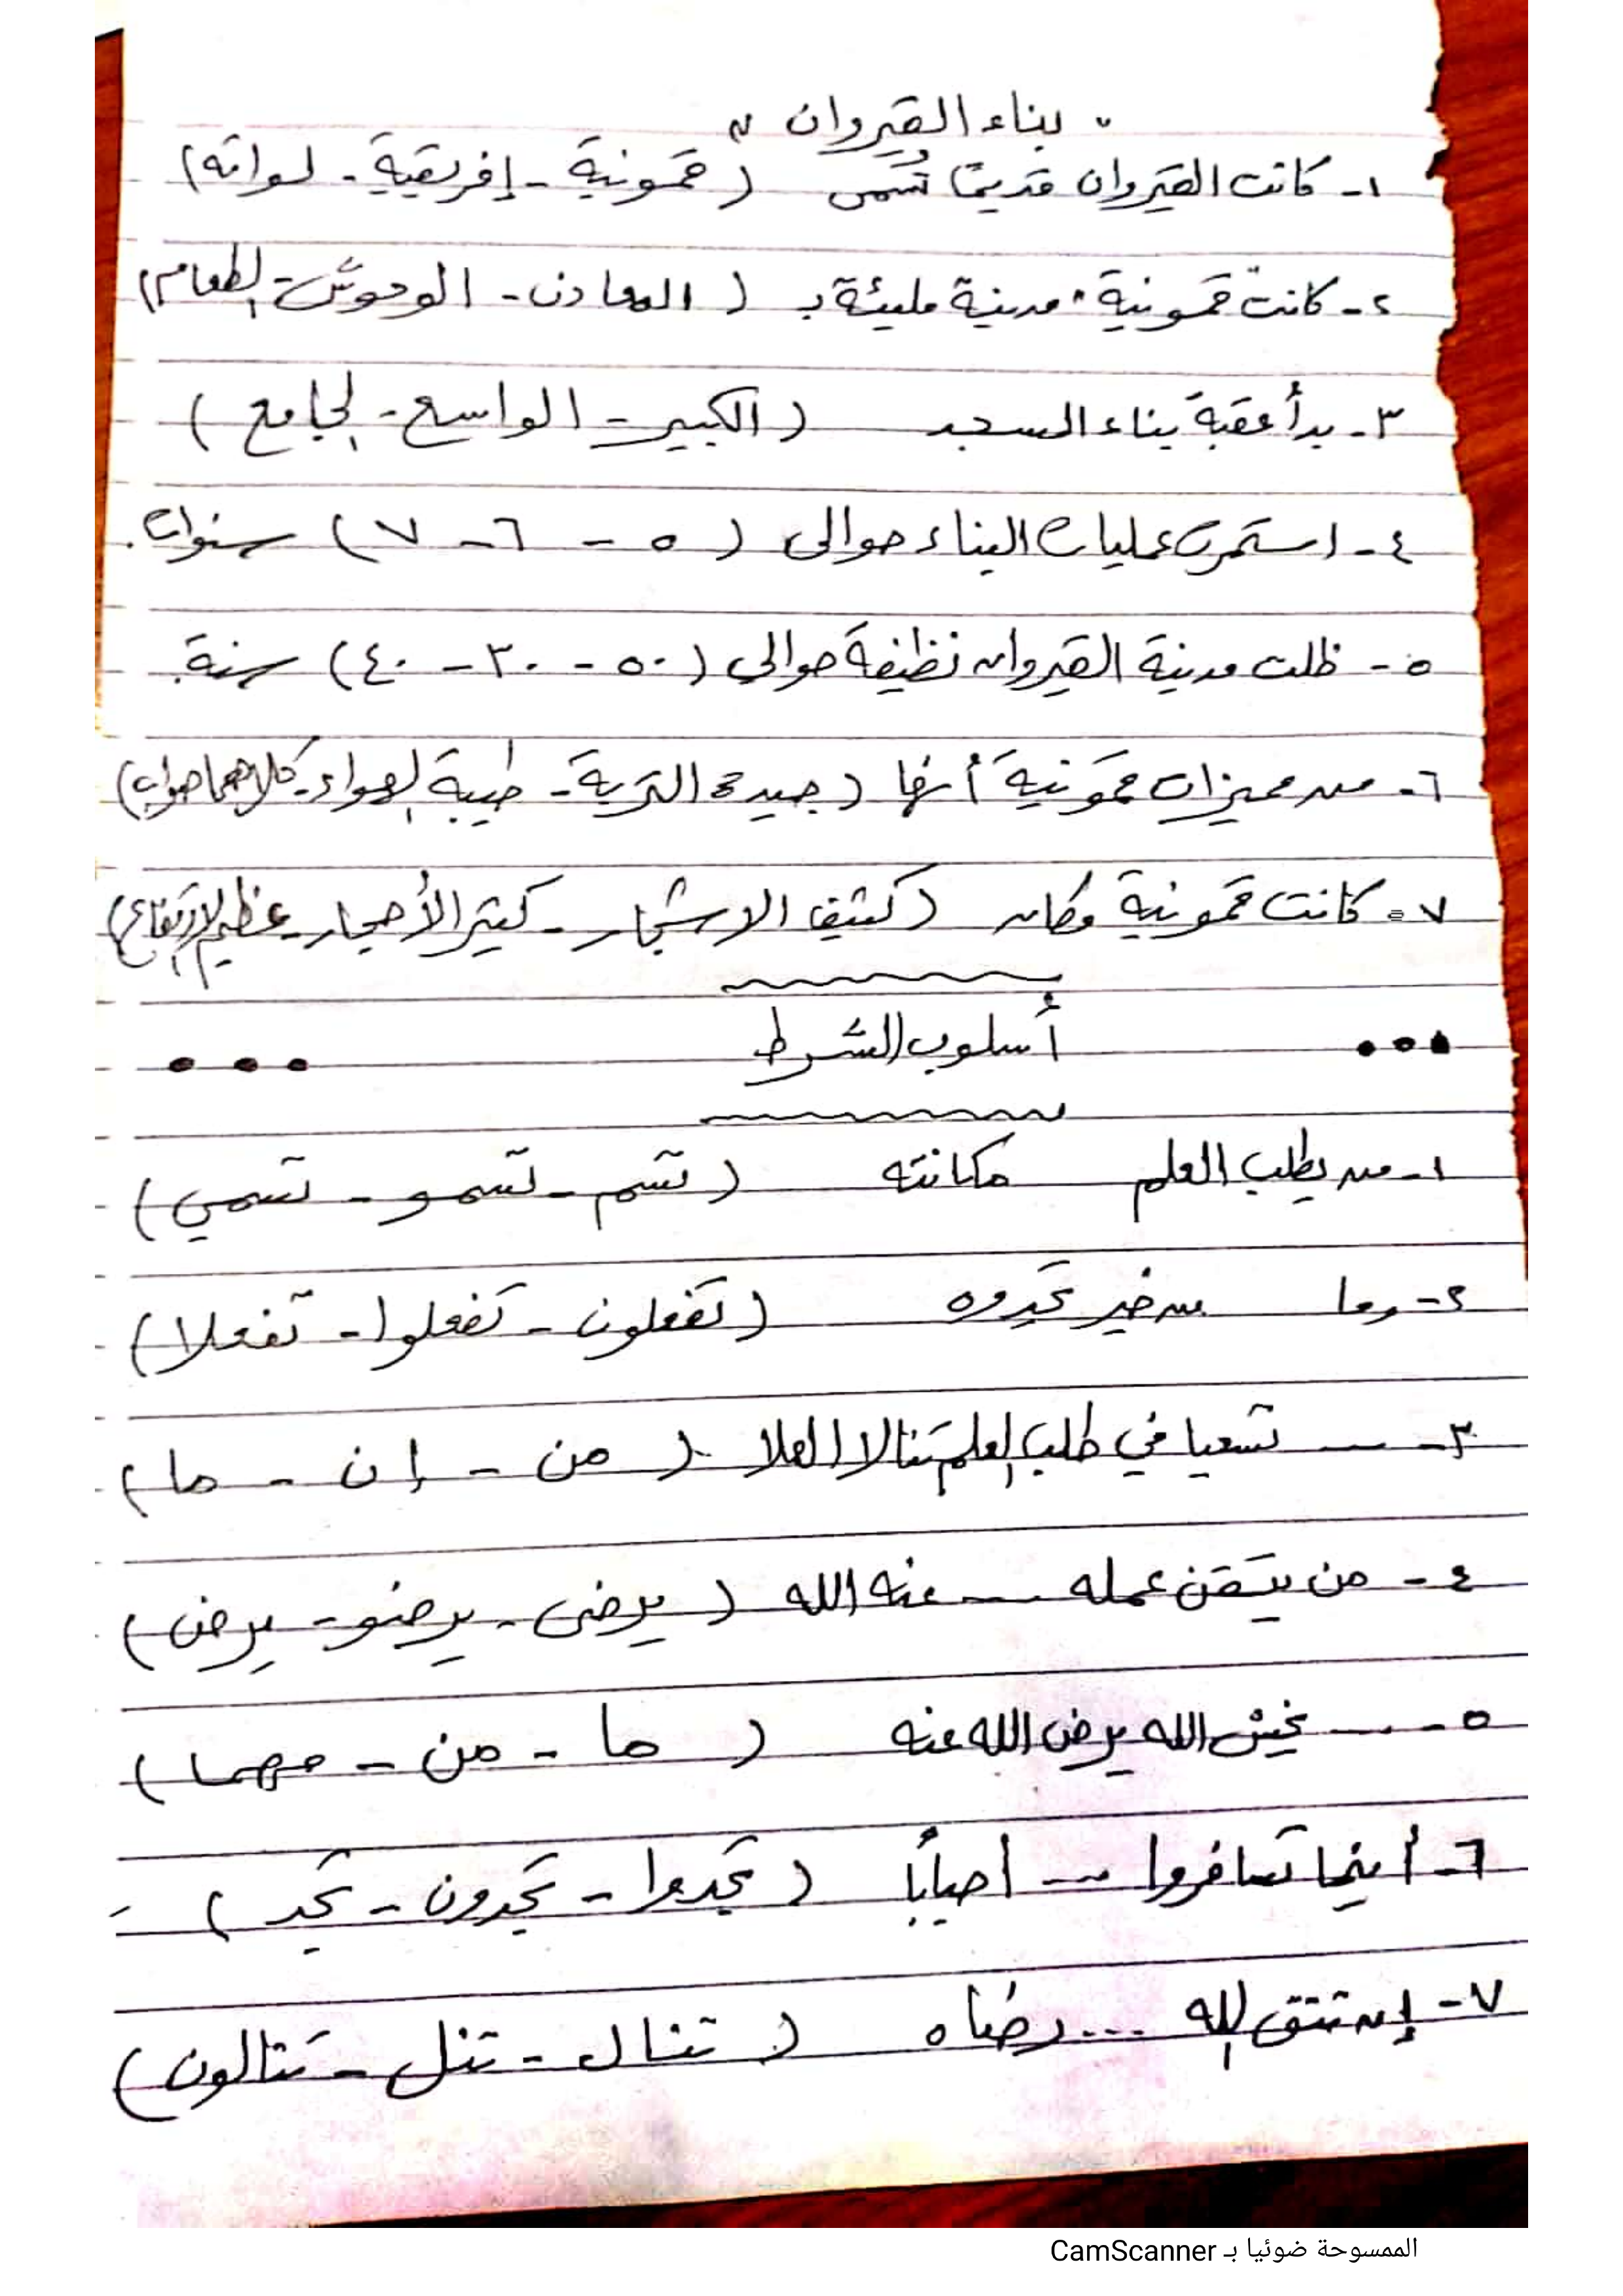 " بناء القيروان "
١- كانت القيروان قديمًا تُسمى ( قمونية - إفريقية - لواته )
٢- كانت قمونية مدينة مليئة بـ ( المعادن - الوحوش - الطعام )
٣- بدأ عقبة بناء المسجد ( الكبير - الواسع - الجامع )
٤- استمرت عمليات البناء حوالى ( ٥ - ٦ - ٧ ) سنوات.
٥- ظلت مدينة القيروان نظيفة حوالى ( ٥٠ - ٣٠ - ٤٠ ) سنة.
٦- من مميزات قمونية أنها ( جيدة التربة - طيبة الهواء - كلاهما صواب )
٧- كانت قمونية مكان ( كثيف الاشجار - كثير الأحجار - عظيم الارتفاع )
أسلوب الشرط
١- من يطلب العلم مكانته ( تسم - تسمو - تسمي )
٢- وما من خير تجدوه ( تفعلون - تفعلوا - تفعلا )
٣- ... تسعيا في طلب العلم تنالا العلا ( من - إن - ما )
٤- من يتقن عمله ... عنه الله ( يرضى - يرضو - يرض )
٥- ... يخش الله يرض الله عنه ( ما - من - مهما )
٦- أينما تسافروا ... أحبابًا ( تجدوا - تجدون - تجد )
٧- إن تتق الله ... رضاه ( تنال - تنل - تنالون )
الممسوحة ضوئيا بـ CamScanner